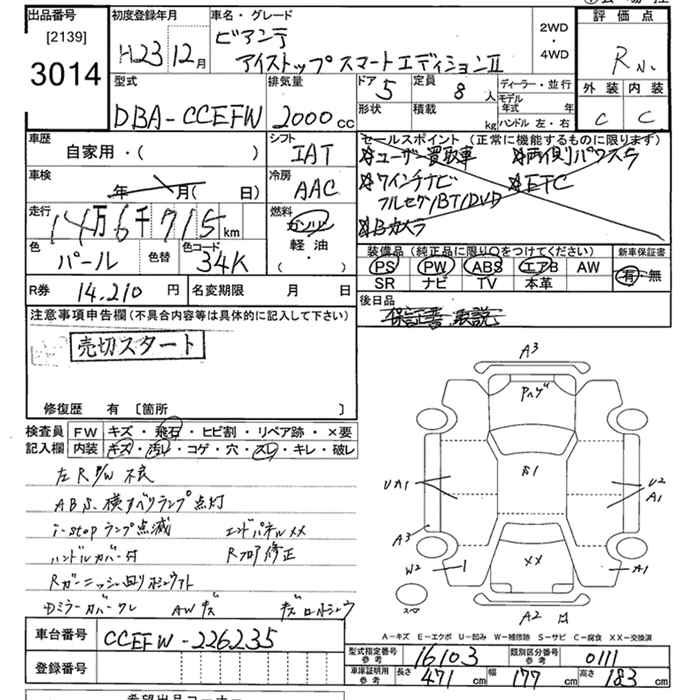 出品番号
[2139]
3014
初度登録年月
H23 12月
車名・グレード
ビアンテ
アイストップ スマートエディションⅡ
2WD
・
4WD
評価点
R
外装 内装
C C
型式
DBA-CCEFW
排気量
2000cc
ドア 5
定員 8人
形状
積載 kg
ディーラー・並行
モデル年式 年
ハンドル 左・右
車歴
自家用・( )
シフト
IAT
車検
年 月( 日)
冷房
AAC
走行
14万6千715km
燃料
ガソリン
軽油
( ・ )
色
パール
色替
色コード
34K
セールスポイント(正常に機能するものに限ります)
☆ユーザー買取車 ☆両側パワスラ
☆ワイングナビ ☆ETC
フルセグ/BT/DVD
☆Bカメラ
装備品(純正品に限り○をつけてください)
PS PW ABS エアB AW
SR ナビ TV 本革
新車保証書
有・無
後日品
保証書 取説
R券 14,210円
名変期限 月 日
注意事項申告欄(不具合内容等は具体的に記入して下さい)
売切スタート
修復歴 有 [箇所 ]
検査員記入欄
FW キズ・飛石・ヒビ割・リペア跡・×要
内装 キズ・汚レ・コゲ・穴・スレ・キレ・破レ
左R P/W 不良
ABS、横すべりランプ点灯
i-stopランプ点滅 エンドパネルXX
ハンドルカバー付 Rフロア修正
Rガーニッシュ
Dミラーカバークレ AWキズ
A3
S1
UA1
U2
A1
A3
W2
XX
A1
A2
A－キズ E－エクボ U－凹み W－補修跡 S－サビ C－腐食 XX－交換済
車台番号
CCEFW-226235
登録番号
型式指定番号 参考 16103
類別区分番号 参考 0111
車庫証明用 参考 長さ 471cm 幅 177cm 高さ 183cm
希望出品コーナー